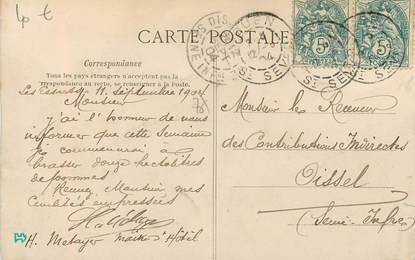 40 €
CARTE POSTALE
Correspondance
Tous les pays étrangers n'acceptent pas la
correspondance au recto, se renseigner à la Poste.
11 Septembre 1904
Monsieur
j'ai l'honneur de vous
informer que cette Semaine
je commencerai à
brasser douze hectolitres
de pommes
Recevez Monsieur mes
Civilités empressées
H. Métayer
H. Metayer Maître d'Hôtel
Monsieur le Receveur
des Contributions Indirectes
Oissel
(Seine Infre)